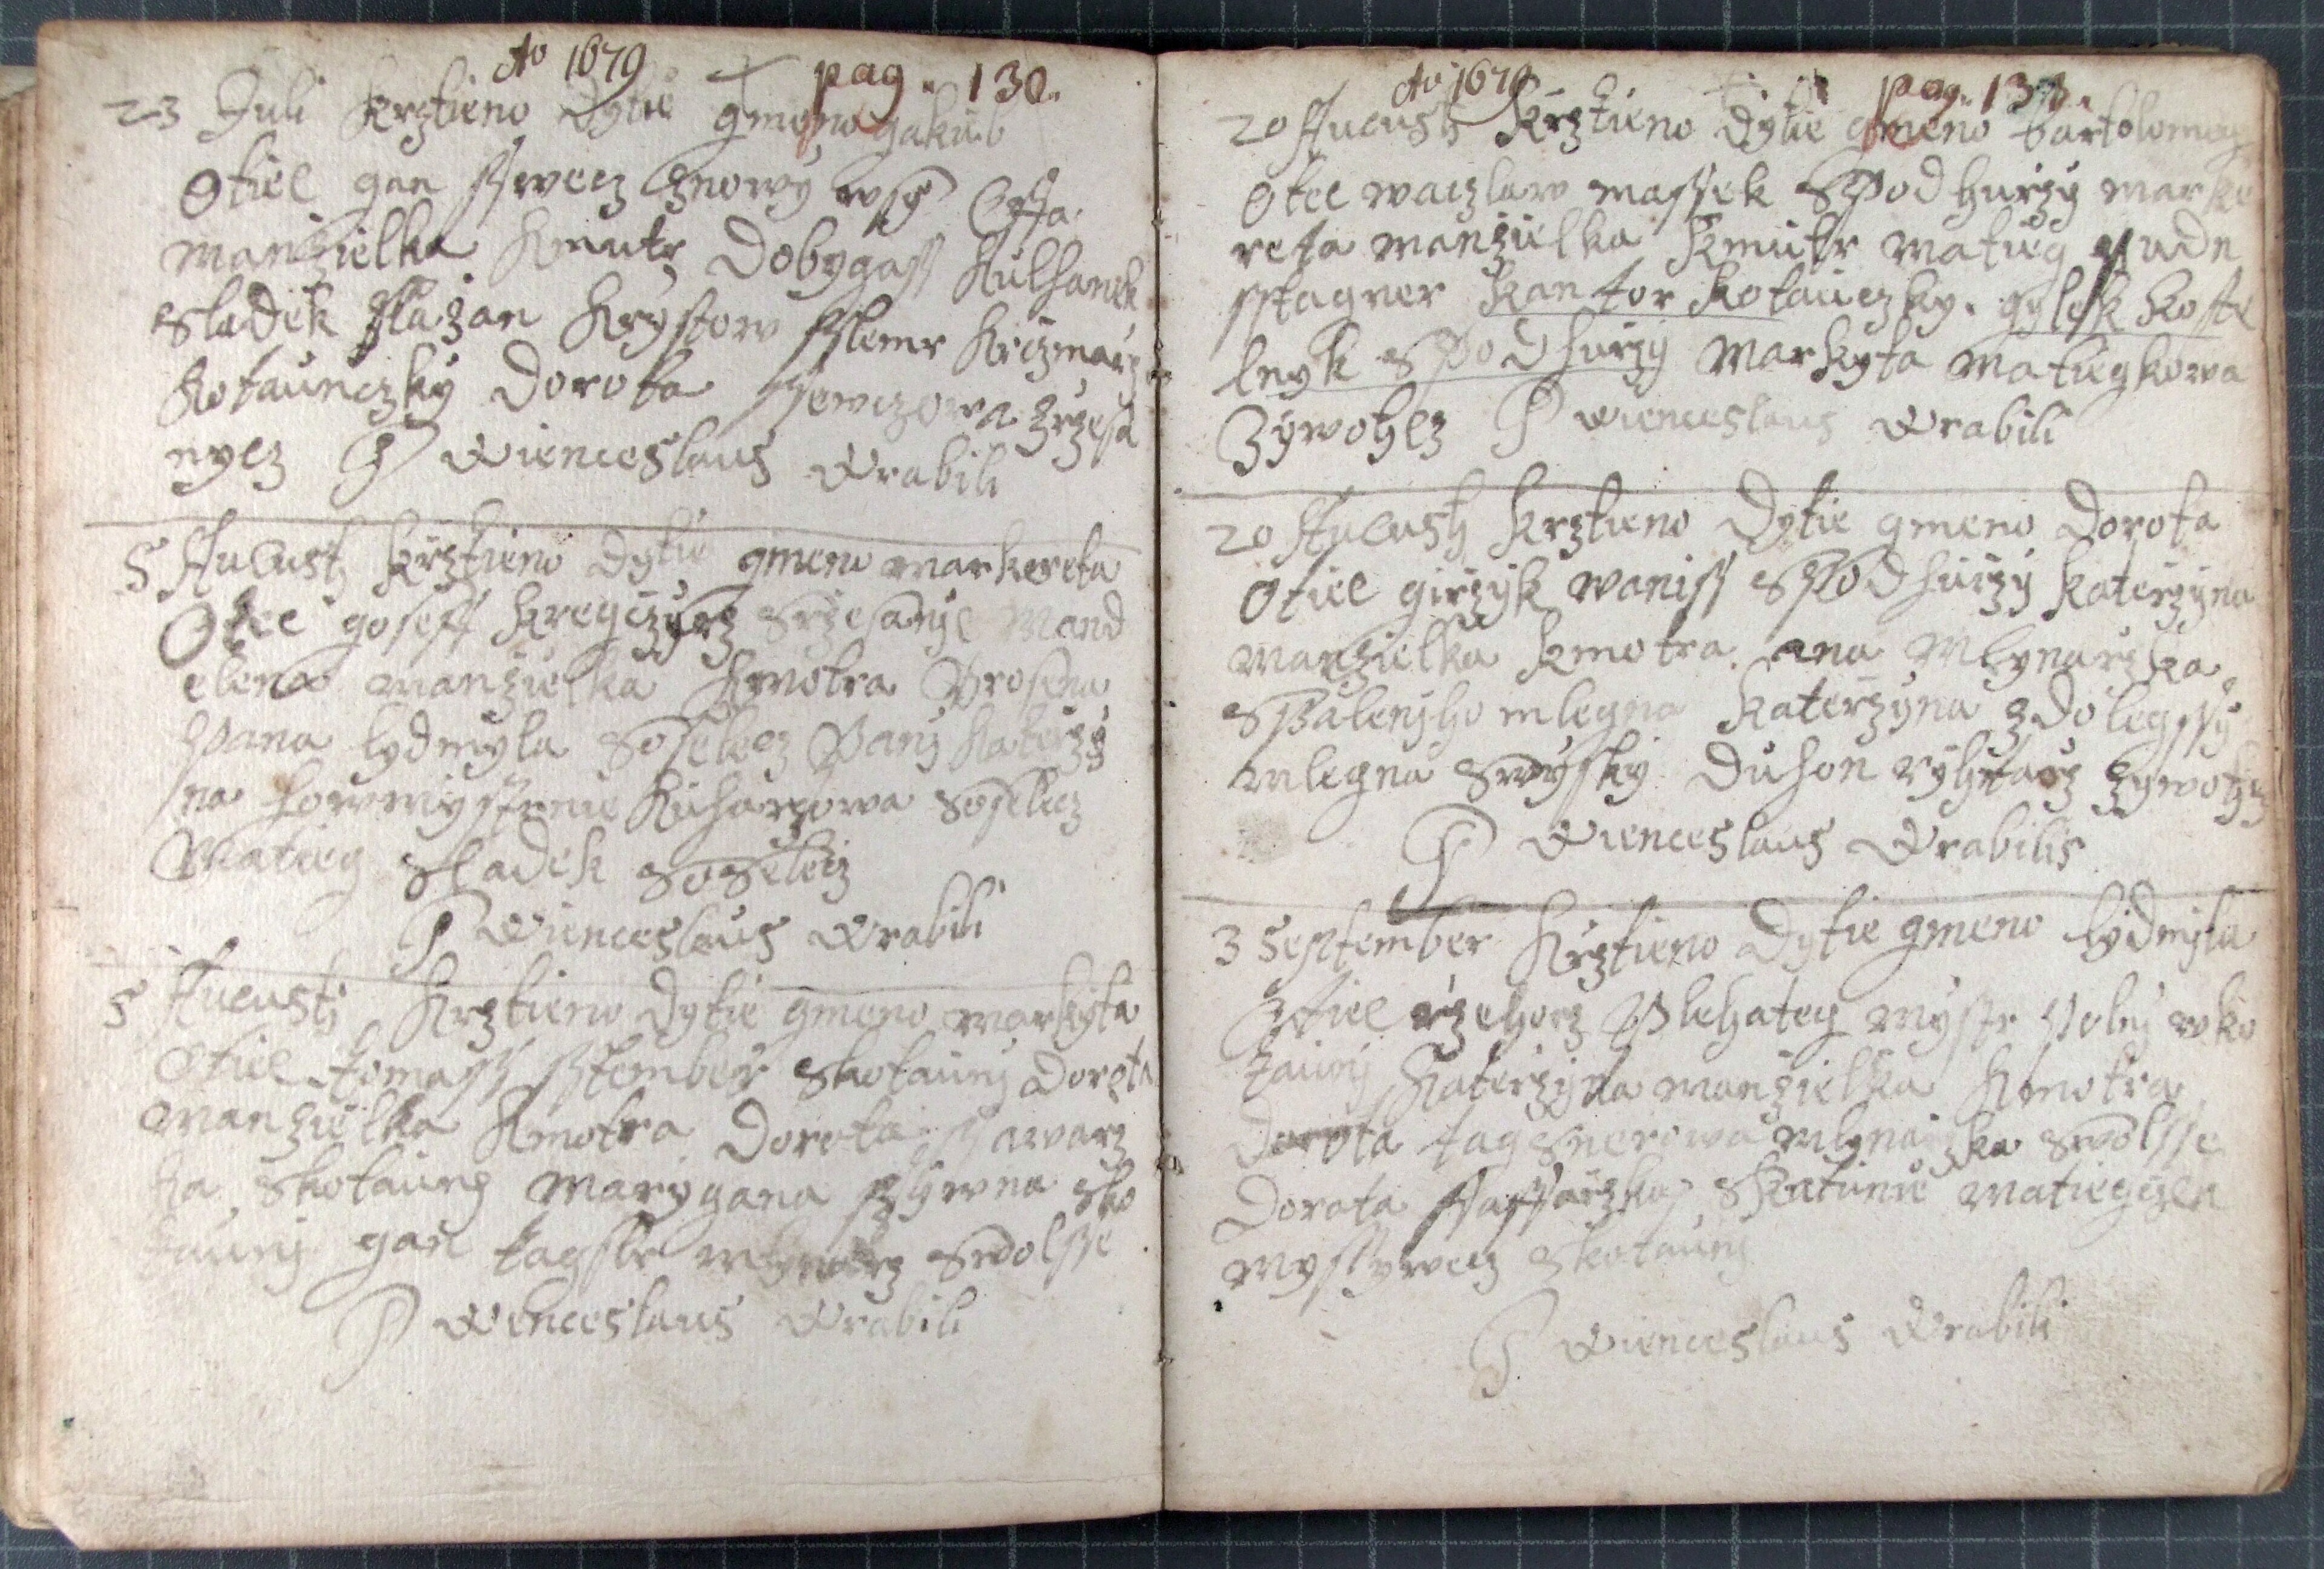 Ao 1679 pag. 130.
23 Juli Krztieno Dytie gmeno gakub
Otiel gan sswecz Znowy wsy Ewa
manzielka Kmutr Dobygass Kulhanek
Sladek Krystow sslemr Krczmarz
Kotaunczky Dorota ssewczowa Zrzesa
nycz P Wienceslaus Wrabili
5 Aucusty Krztieno Dytie gmeno markereta
Otec goseff Kregczyrz Srzesanyc Mand
elena manzielka Kmotra Urosena
Pana lydmyla Soselecz Pany Katerzy
na Kucharzowa Soselecz
Matieg Sladek Soselecz
P Wienceslaus Wrabili
5 Aucusty Krztieno Dytie gmeno markyta
Otiel tomass sstember Skotauny Dorota
manzielka Kmotra Dorota ssawarz
ka Skotauny marygana zywna Sko
tauny gan tagslr mlynarz Swolsse
P Wienceslaus Wrabili
Ao 1679 pag. 131.
20 Aucusty Krztieno Dytie gmeno bartolomeg
Otec waczlaw massek SPodhurzy marke
reta manzielka Kmutr matieg
sstagner Kantor Kotauczky. Kost
lnyk SPodhurzy Markyta Matiegkowa
Zywotycz P Wienceslaus Wrabili
20 Aucusty Krztieno Dytie gmeno Dorota
Otiel girzyk waniss SPodhurzy Katerzyna
manzielka Kmotra ana Mlynarzka
SPalenyho mlegna Katerzyna Zdolegssy
mlegna Duhon rychtarz Zywotycz
P Wienceslaus Wrabilis
3 September Krztieno Dytie gmeno lydmyla
Otiel rzehorz Plehatey mystr Poly wko
tauny Katerzyna manzielka Kmotra
Dorota tagsnerowa mlynarzka Swolsse
Dorota ssaffarzka Matiegczek
myssywecz Skotauny
P Wienceslaus Wrabili